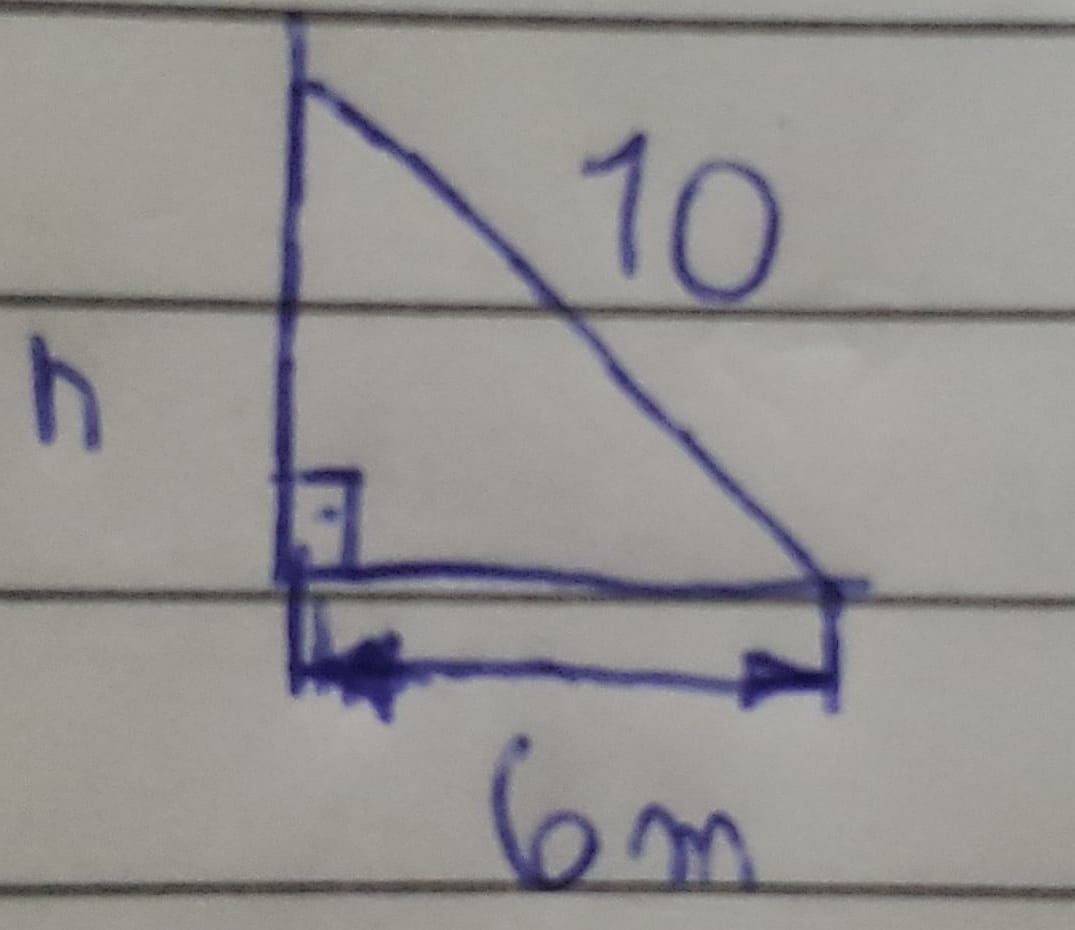 10
h
6 m